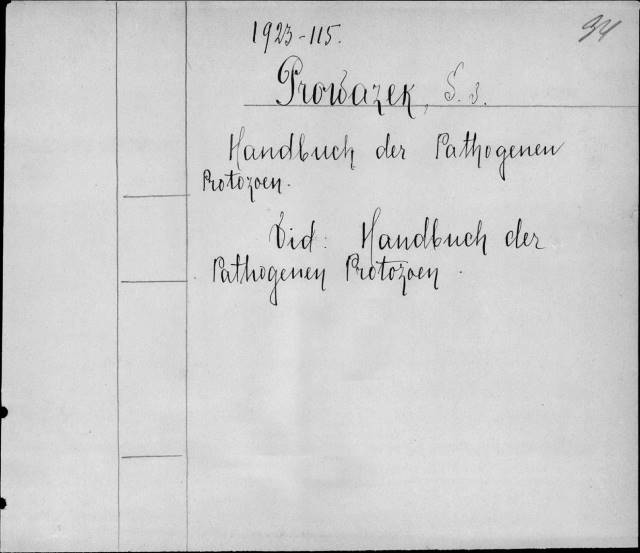 34
1923-115.
Prowazek, S. v.
Handbuch der Pathogenen
Protozoen.
Vid: Handbuch der
Pathogenen Protozoen.